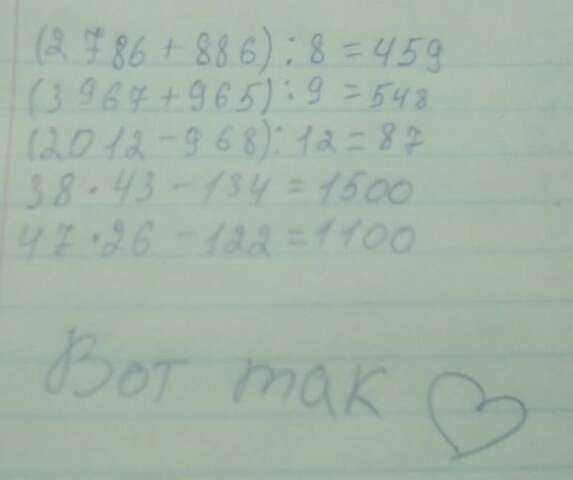 (2786 + 886) : 8 = 459
(3967 + 965) : 9 = 548
(2012 - 968) : 12 = 87
38 · 43 - 134 = 1500
47 · 26 - 122 = 1100
Вот так ♡